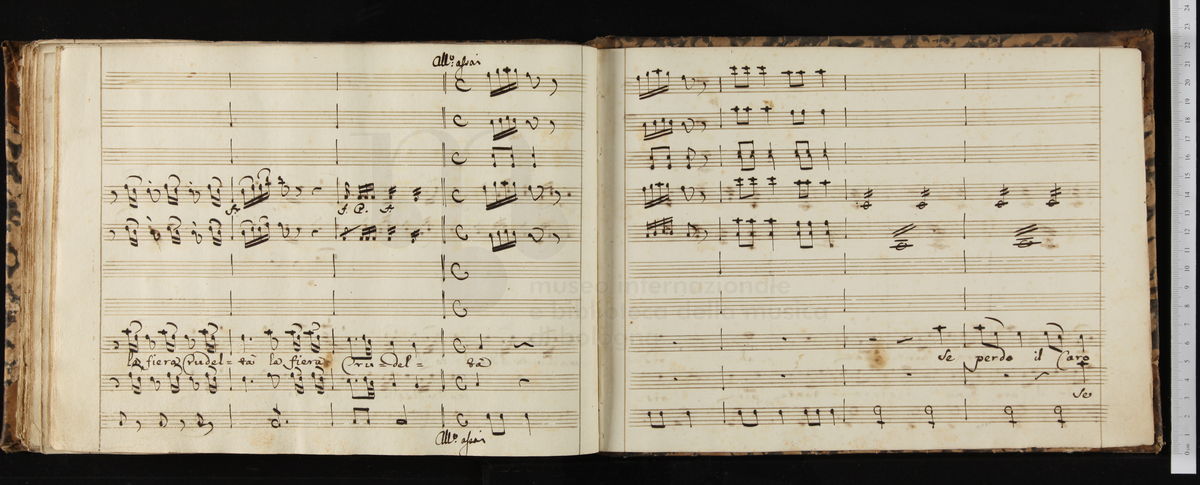 All.º assai
la fiera Crudel=tà la fiera Cru=del=tà
All.º assai
Se perdo il Caro
Se
museo internazionale
e biblioteca della musica
di bologna